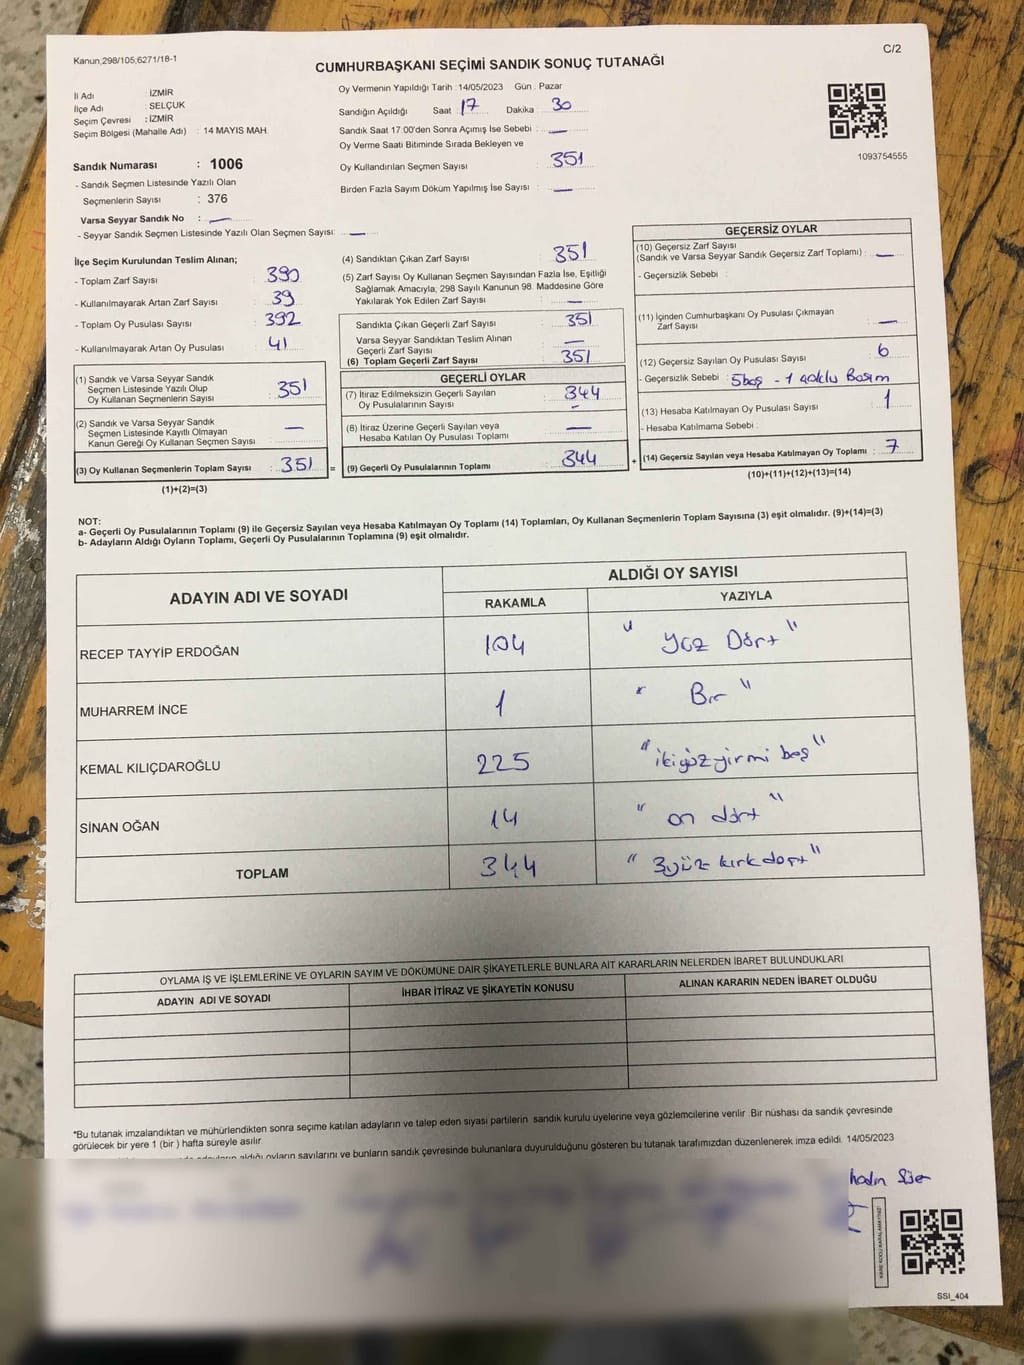 Kanun;298/105;6271/18-1
C/2
CUMHURBAŞKANI SEÇİMİ SANDIK SONUÇ TUTANAĞI
İl Adı : İZMİR
İlçe Adı : SELÇUK
Seçim Çevresi : İZMİR
Seçim Bölgesi (Mahalle Adı) : 14 MAYIS MAH.
Sandık Numarası : 1006
- Sandık Seçmen Listesinde Yazılı Olan
Seçmenlerin Sayısı : 376
Varsa Seyyar Sandık No : —
- Seyyar Sandık Seçmen Listesinde Yazılı Olan Seçmen Sayısı: —
Oy Vermenin Yapıldığı Tarih :14/05/2023 Gün : Pazar
Sandığın Açıldığı Saat : 17 Dakika : 30
Sandık Saat 17:00'den Sonra Açımış İse Sebebi : —
Oy Verme Saati Bitiminde Sırada Bekleyen ve
Oy Kullandırılan Seçmen Sayısı : 351
Birden Fazla Sayım Döküm Yapılmış İse Sayısı : —
1093754555
İlçe Seçim Kurulundan Teslim Alınan;
- Toplam Zarf Sayısı : 390
- Kullanılmayarak Artan Zarf Sayısı : 39
- Toplam Oy Pusulası Sayısı : 392
- Kullanılmayarak Artan Oy Pusulası : 41
(1) Sandık ve Varsa Seyyar Sandık
Seçmen Listesinde Yazılı Olup
Oy Kullanan Seçmenlerin Sayısı : 351
(2) Sandık ve Varsa Seyyar Sandık
Seçmen Listesinde Kayıtlı Olmayan
Kanun Gereği Oy Kullanan Seçmen Sayısı : —
(3) Oy Kullanan Seçmenlerin Toplam Sayısı : 351 =
(1)+(2)=(3)
(4) Sandıktan Çıkan Zarf Sayısı : 351
(5) Zarf Sayısı Oy Kullanan Seçmen Sayısından Fazla İse, Eşitliği
Sağlamak Amacıyla; 298 Sayılı Kanunun 98. Maddesine Göre
Yakılarak Yok Edilen Zarf Sayısı : —
Sandıkta Çıkan Geçerli Zarf Sayısı : 351
Varsa Seyyar Sandıktan Teslim Alınan
Geçerli Zarf Sayısı : —
(6) Toplam Geçerli Zarf Sayısı : 351
GEÇERLİ OYLAR
(7) İtiraz Edilmeksizin Geçerli Sayılan
Oy Pusulalarının Sayısı : 344
(8) İtiraz Üzerine Geçerli Sayılan veya
Hesaba Katılan Oy Pusulası Toplamı : —
(9) Geçerli Oy Pusulalarının Toplamı : 344 +
GEÇERSİZ OYLAR
(10) Geçersiz Zarf Sayısı
(Sandık ve Varsa Seyyar Sandık Geçersiz Zarf Toplamı) : —
- Geçersizlik Sebebi :
(11) İçinden Cumhurbaşkanı Oy Pusulası Çıkmayan
Zarf Sayısı : —
(12) Geçersiz Sayılan Oy Pusulası Sayısı : 6
- Geçersizlik Sebebi : 5boş - 1 çoklu Basım
(13) Hesaba Katılmayan Oy Pusulası Sayısı : 1
- Hesaba Katılmama Sebebi :
(14) Geçersiz Sayılan veya Hesaba Katılmayan Oy Toplamı : 7
(10)+(11)+(12)+(13)=(14)
NOT:
a- Geçerli Oy Pusulalarının Toplamı (9) ile Geçersiz Sayılan veya Hesaba Katılmayan Oy Toplamı (14) Toplamları, Oy Kullanan Seçmenlerin Toplam Sayısına (3) eşit olmalıdır. (9)+(14)=(3)
b- Adayların Aldığı Oyların Toplamı, Geçerli Oy Pusulalarının Toplamına (9) eşit olmalıdır.
ADAYIN ADI VE SOYADI
ALDIĞI OY SAYISI
RAKAMLA YAZIYLA
RECEP TAYYİP ERDOĞAN 104 " Yüz Dört "
MUHARREM İNCE 1 " Bir "
KEMAL KILIÇDAROĞLU 225 " ikiyüzyirmi beş "
SİNAN OĞAN 14 " on dört "
TOPLAM 344 " 3yüz kırkdört "
OYLAMA İŞ VE İŞLEMLERİNE VE OYLARIN SAYIM VE DÖKÜMÜNE DAİR ŞİKAYETLERLE BUNLARA AİT KARARLARIN NELERDEN İBARET BULUNDUKLARI
ADAYIN ADI VE SOYADI İHBAR İTİRAZ VE ŞİKAYETİN KONUSU ALINAN KARARIN NEDEN İBARET OLDUĞU
*Bu tutanak imzalandıktan ve mühürlendikten sonra seçime katılan adayların ve talep eden siyasi partilerin sandık kurulu üyelerine veya gözlemcilerine verilir. Bir nüshası da sandık çevresinde
görülecek bir yere 1 (bir ) hafta süreyle asılır.
aldığı oyların sayılarını ve bunların sandık çevresinde bulunanlara duyurulduğunu gösteren bu tutanak tarafımızdan düzenlenerek imza edildi. 14/05/2023
SSI_404